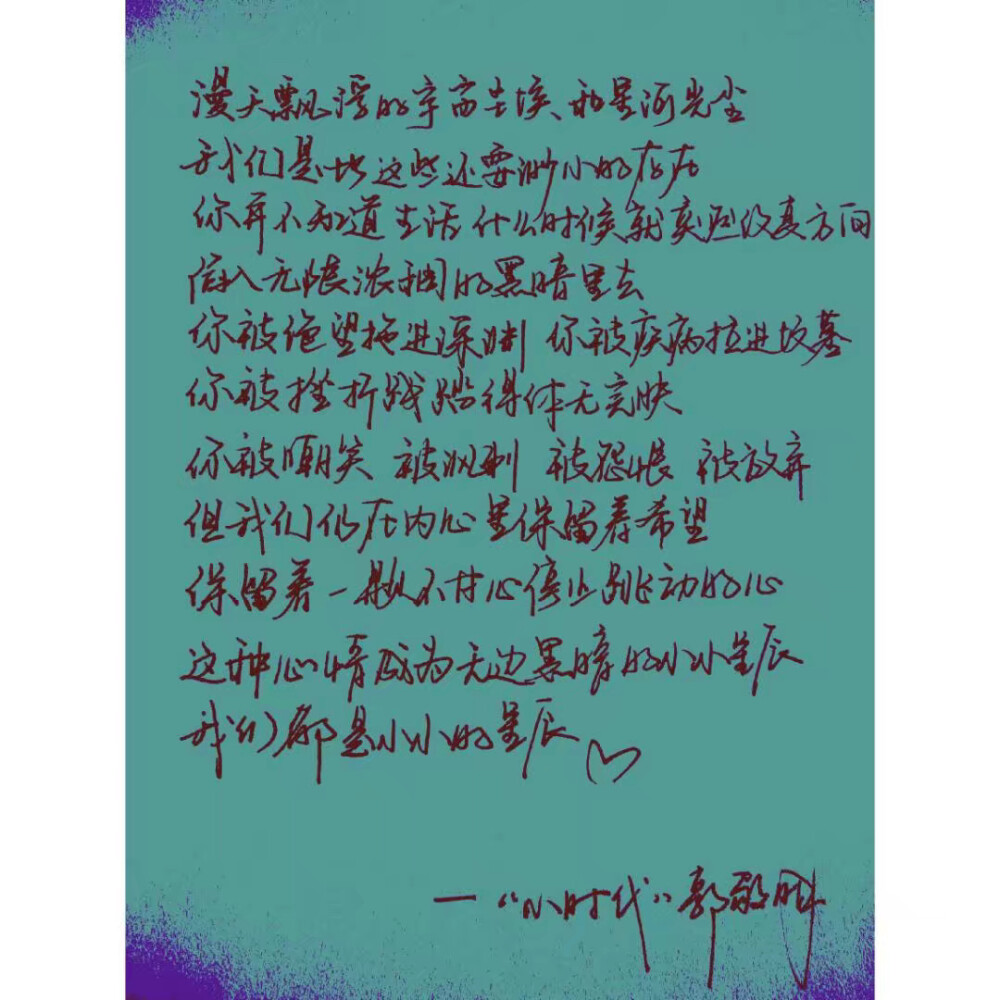 漫天飘浮的宇宙尘埃、和星河光尘
我们是比这些还要渺小的存在
你并不知道生活什么时候就突然改变方向
陷入无限浓稠的黑暗里去
你被绝望拖进深渊 你被疾病拉进坟墓
你被挫折践踏得体无完肤
你被嘲笑 被讽刺 被怨恨 被放弃
但我们仍在内心里保留着希望
保留着一颗不甘心停止跳动的心
这种心情成为无边黑暗的小小星辰
我们都是小小的星辰
—“小时代”郭敬明